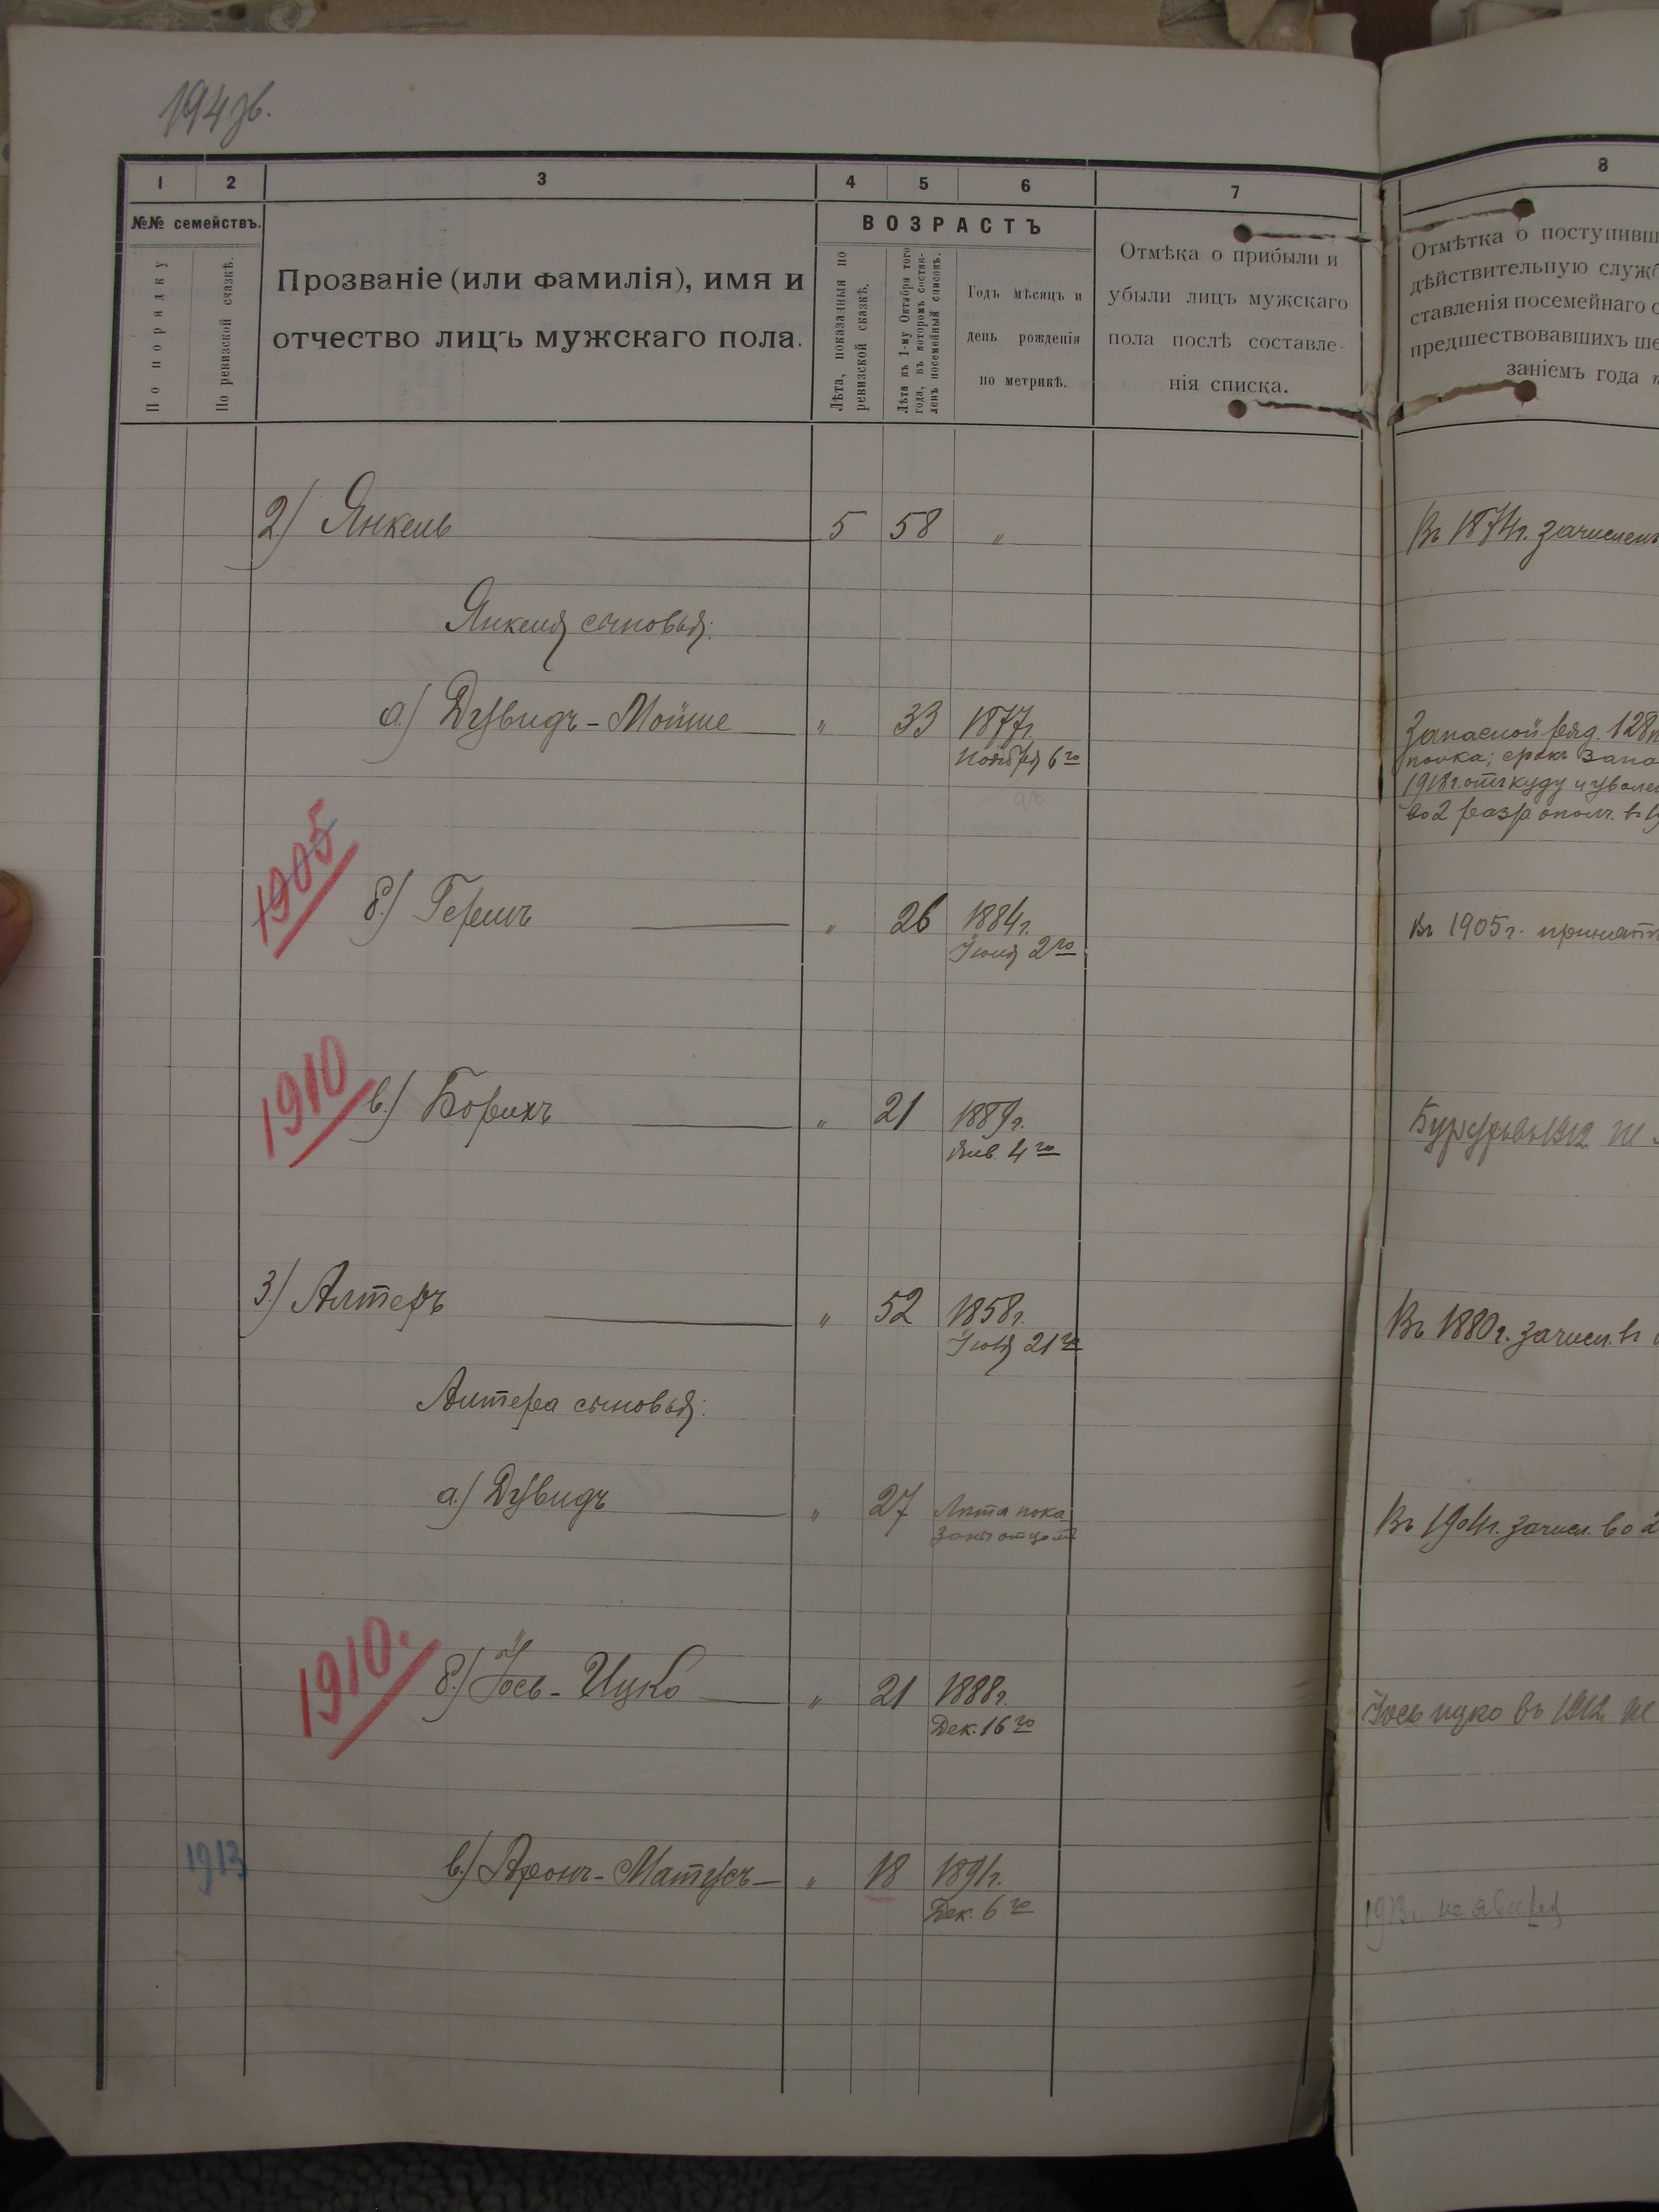 194 зв.
1 2 3 4 5 6 7 8
№№ семействъ.
По порядку
По ревизской сказкѣ.
Прозваніе (или фамилія), имя и
отчество лицъ мужскаго пола.
ВОЗРАСТЪ
Лѣта, показанныя по
ревизской сказкѣ.
Лѣта къ 1-му Октября того
года, въ которомъ состав-
ленъ посемейный списокъ.
Годъ мѣсяцъ и
день рожденія
по метрикѣ.
Отмѣка о прибыли и
убыли лицъ мужскаго
пола послѣ составле-
нія списка.
Отмѣтка о поступивш
дѣйствительную служб
ставленія посемейнаго с
предшествовавшихъ ше
заніемъ года
2.) Янкель 5 58 " Въ 1874г. зачисленъ
Янкеля сыновья:
а.) Дувидъ-Мойше " 33 1877г.
Ноября 6го
Запасной ряд. 128
полка; срокъ запа
1918г. откуду и уволе
во 2 разр. ополч. въ
1905 б.) Гершъ " 26 1884г. Въ 1905г. принятъ
Іюля 2го
1910 в.) Борихъ " 21 1889г.
Янв. 4го
3.) Алтеръ " 52 1858г. Въ 1880г. зачисл. въ
21го
Алтера сыновья:
а.) Дувидъ " 27 Лѣта пока Въ 1904г. зачисл. во 2
заны отцомъ
1910. б.) Іось-Ицко " 21 1888г. Іось ицко въ 1912 не
Дек. 16го
1913 в.) Аронъ-Матусъ " 18 1891г.
Дек. 6го
1913г. не явился